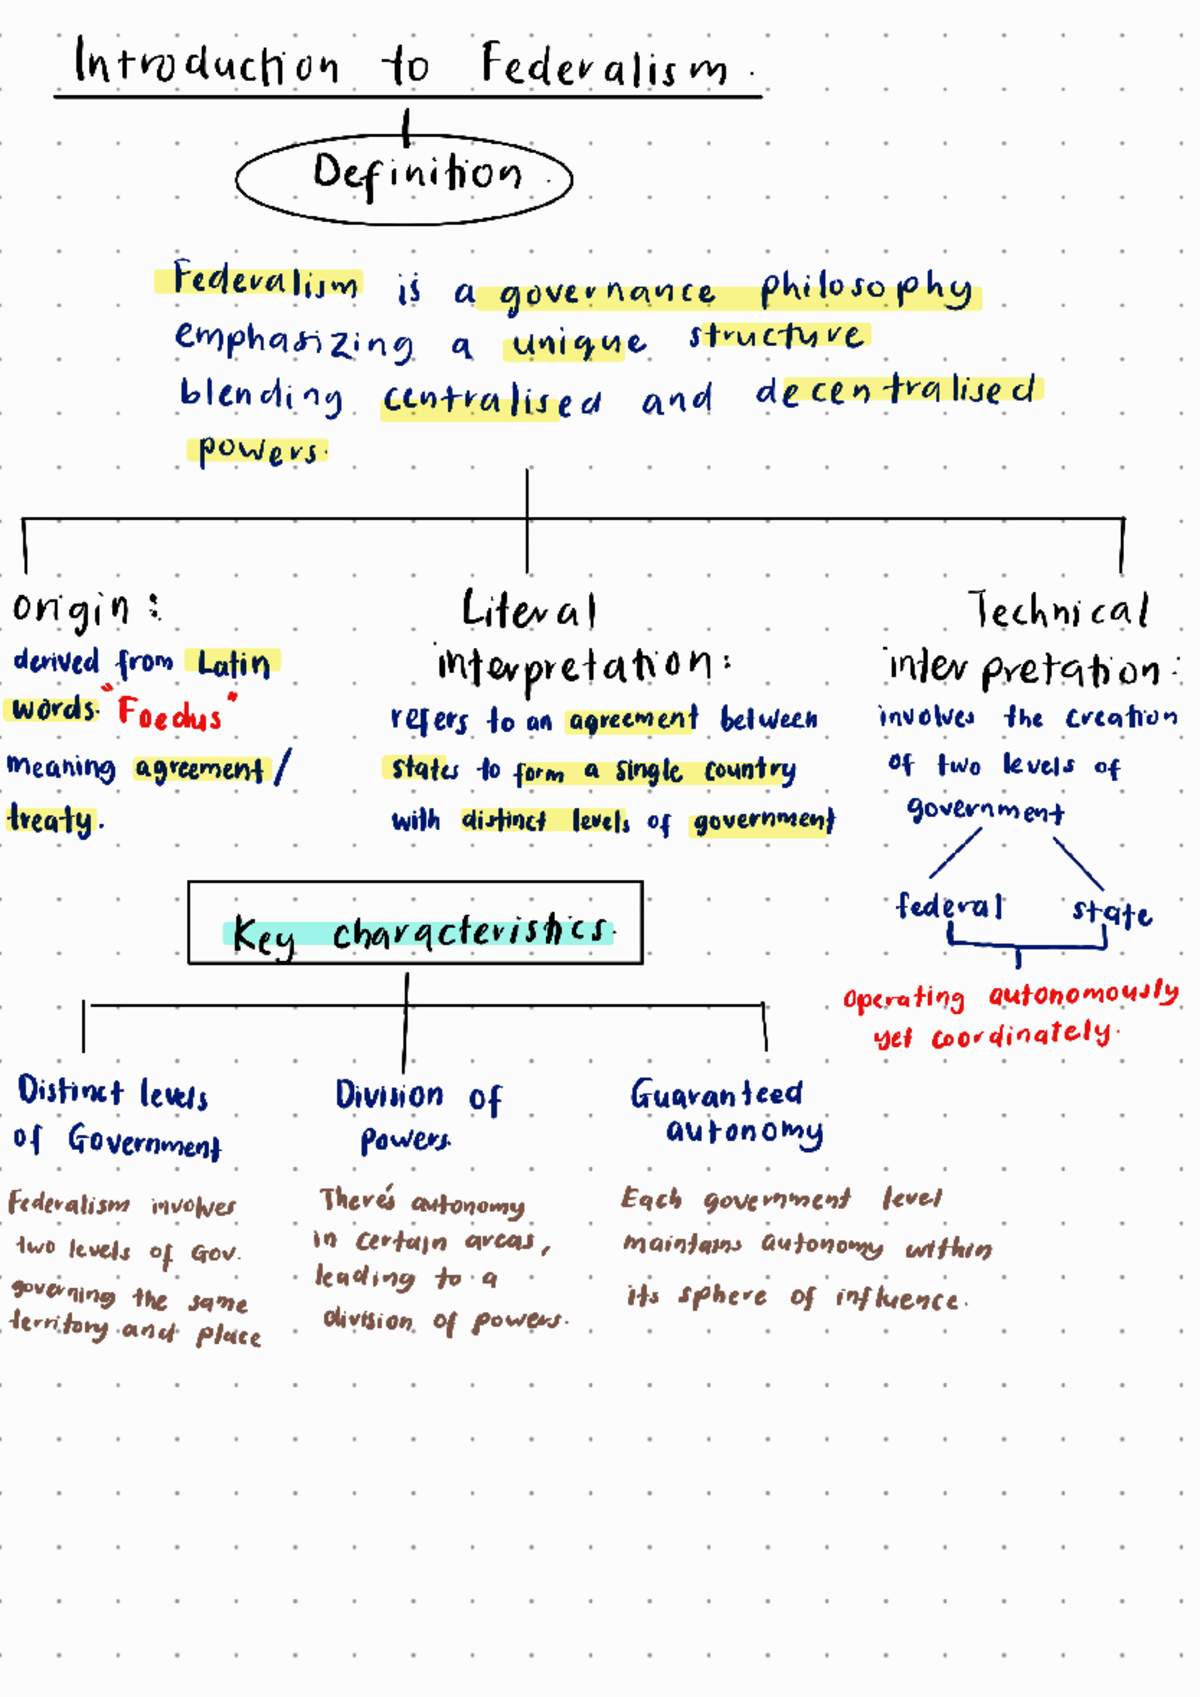 Introduction to Federalism.
Definition.
Federalism is a governance philosophy
emphasizing a unique structure
blending centralised and decentralised
powers.
origin:
derived from Latin
words. "Foedus"
meaning agreement/
treaty.
Literal
interpretation:
refers to an agreement between
states to form a single country
with distinct levels of government
Technical
interpretation:
involves the creation
of two levels of
government
federal state
operating autonomously
yet coordinately.
Key characteristics.
Distinct levels
of Government
Federalism involves
two levels of Gov.
governing the same
territory and place
Division of
powers.
There's autonomy
in certain areas,
leading to a
division of powers.
Guaranteed
autonomy
Each government level
maintains autonomy within
its sphere of influence.